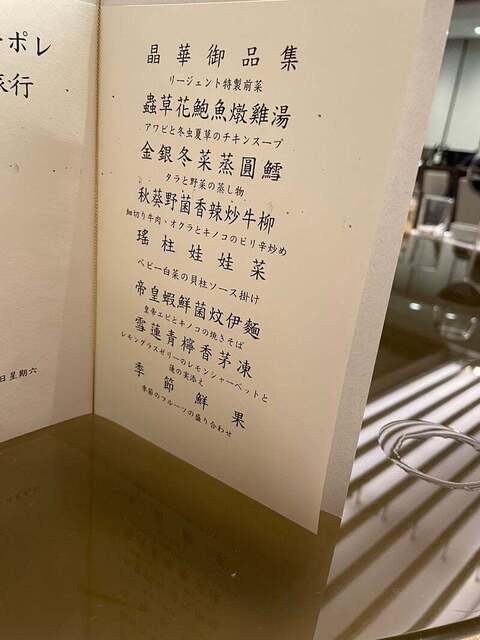 ーポレ
旅行
日星期六
晶華御品集
リージェント特製前菜
蟲草花鮑魚燉雞湯
アワビと冬虫夏草のチキンスープ
金銀冬菜蒸圓鱈
タラと野菜の蒸し物
秋葵野菌香辣炒牛柳
細切り牛肉、オクラとキノコのピリ辛炒め
瑤柱娃娃菜
ベビー白菜の貝柱ソース掛け
帝皇蝦鮮菌炆伊麵
皇帝エビとキノコの焼きそば
雪蓮青檸香茅凍
レモングラスゼリーのレモンシャーベットと
蓮の実添え
季節鮮果
季節のフルーツの盛り合わせ